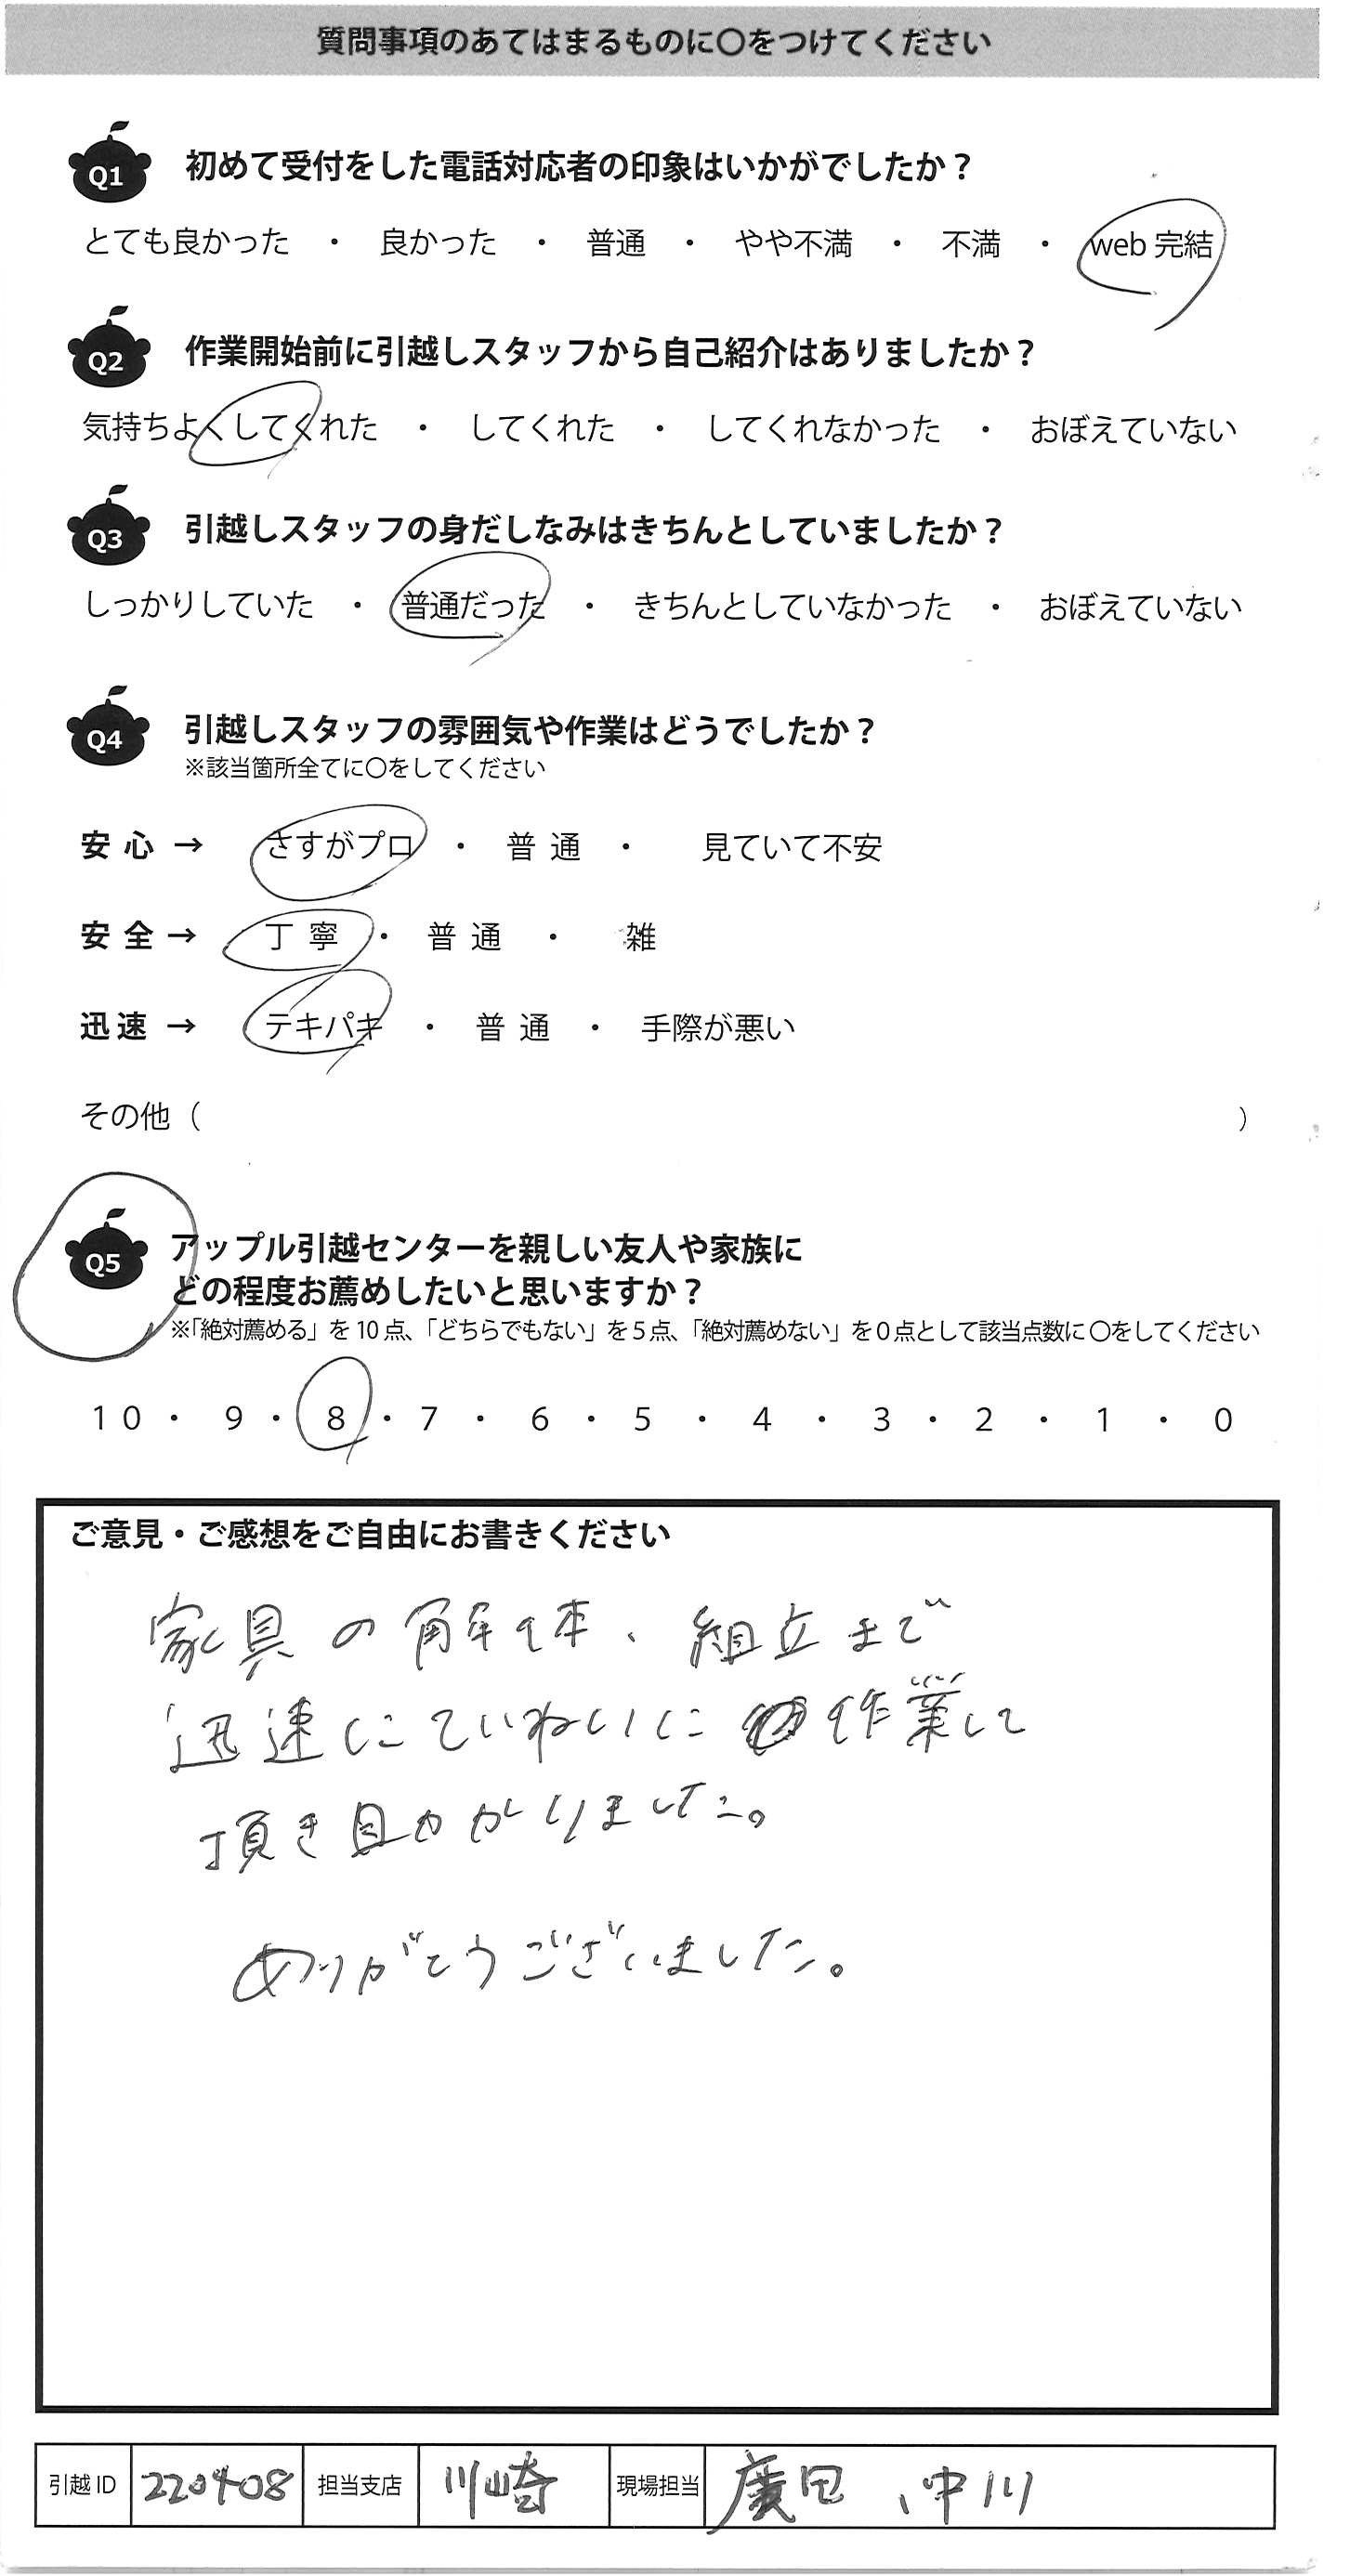 質問事項のあてはまるものに〇をつけてください
Q1 初めて受付をした電話対応者の印象はいかがでしたか？
とても良かった ・ 良かった ・ 普通 ・ やや不満 ・ 不満 ・ web 完結
Q2 作業開始前に引越しスタッフから自己紹介はありましたか？
気持ちよくしてくれた ・ してくれた ・ してくれなかった ・ おぼえていない
Q3 引越しスタッフの身だしなみはきちんとしていましたか？
しっかりしていた ・ 普通だった ・ きちんとしていなかった ・ おぼえていない
Q4 引越しスタッフの雰囲気や作業はどうでしたか？
※該当箇所全てに〇をしてください
安心 → さすがプロ ・ 普通 ・ 見ていて不安
安全 → 丁寧 ・ 普通 ・ 雑
迅速 → テキパキ ・ 普通 ・ 手際が悪い
その他（ ）
Q5 アップル引越センターを親しい友人や家族に
どの程度お薦めしたいと思いますか？
※「絶対薦める」を10点、「どちらでもない」を5点、「絶対薦めない」を0点として該当点数に〇をしてください
10 ・ 9 ・ 8 ・ 7 ・ 6 ・ 5 ・ 4 ・ 3 ・ 2 ・ 1 ・ 0
ご意見・ご感想をご自由にお書きください
家具の解体、組立まで
迅速にていねいに作業して
頂き助かりました。
ありがとうございました。
引越ID 220408 担当支店 川崎 現場担当 廣田、中川